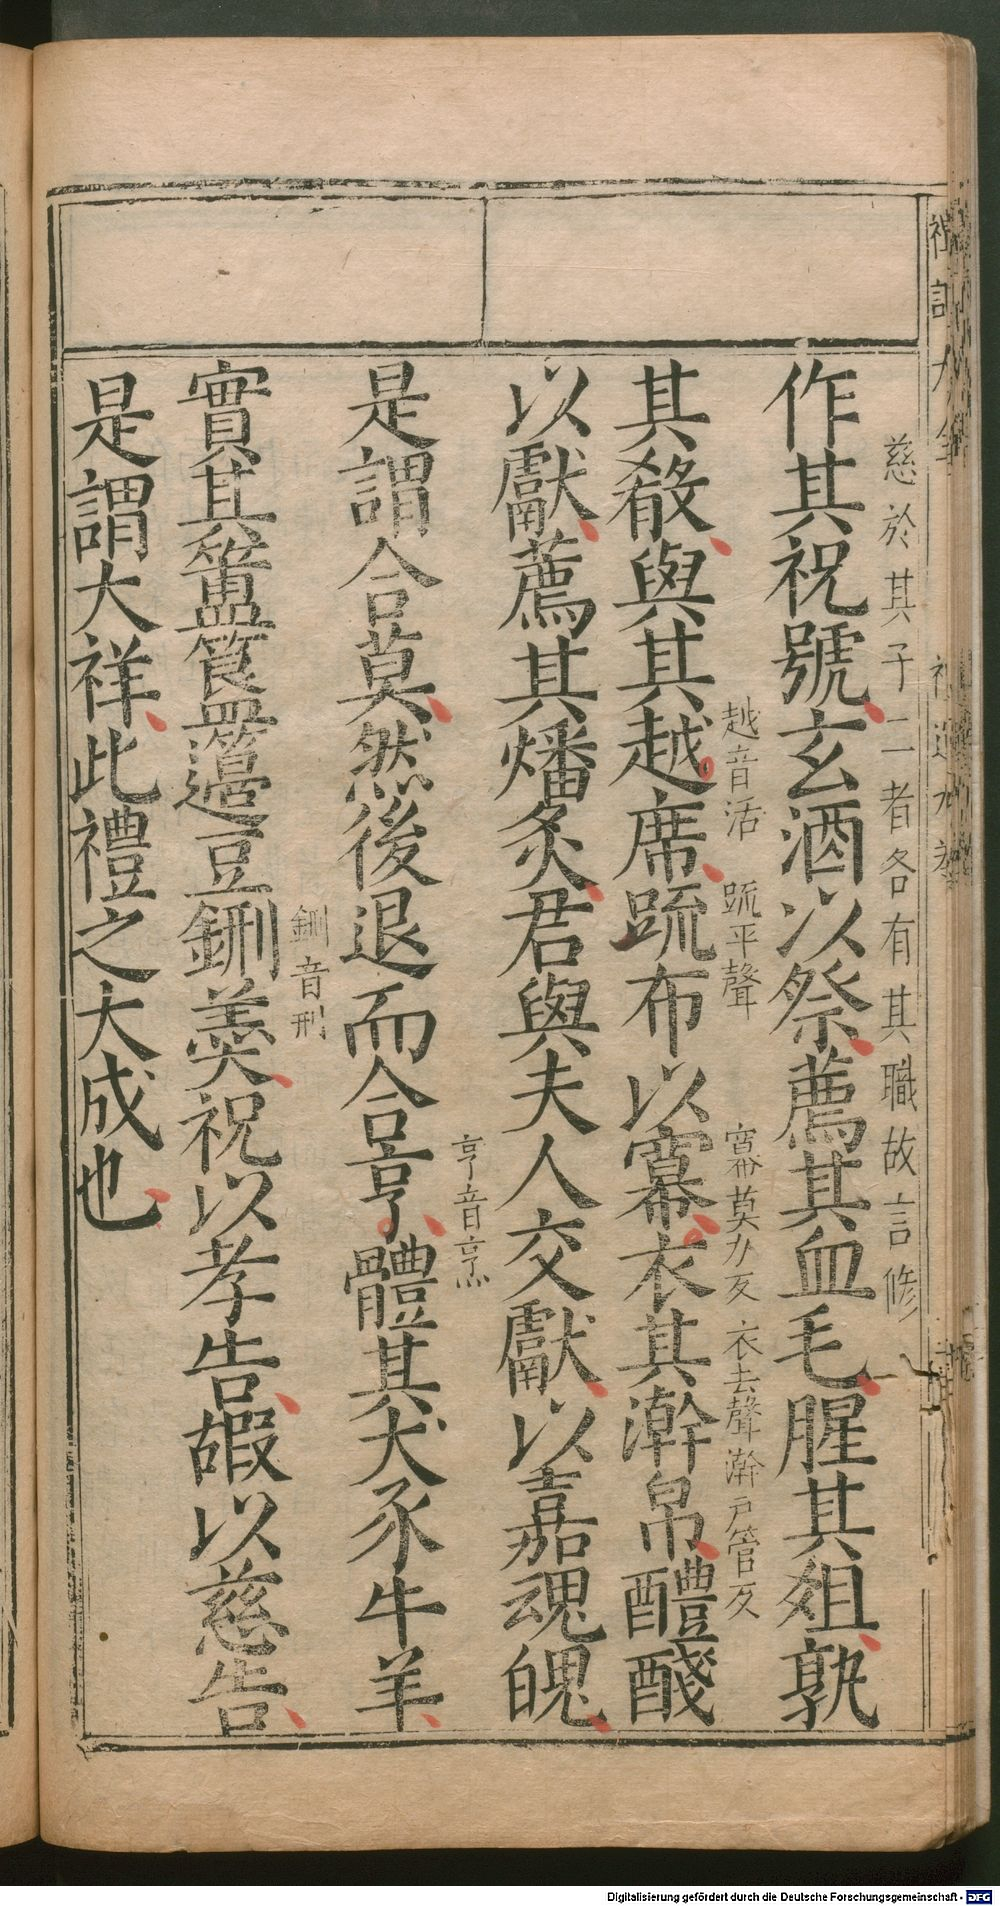 慈於其子二者各有其職故言修
作其祝號玄酒以祭薦其血毛腥其俎孰
越音活 䟽平聲 冪莫力反 衣去聲 澣戶管反
其殽與其越席䟽布以冪衣其澣帛醴醆
以獻薦其燔炙君與夫人交獻以嘉魂魄
亨音烹
是謂合莫然後退而合亨體其犬豕牛羊
鉶音刑
實其簠簋籩豆鉶羹祝以孝告嘏以慈告
是謂大祥此禮之大成也
Digitalisierung gefördert durch die Deutsche Forschungsgemeinschaft - DFG